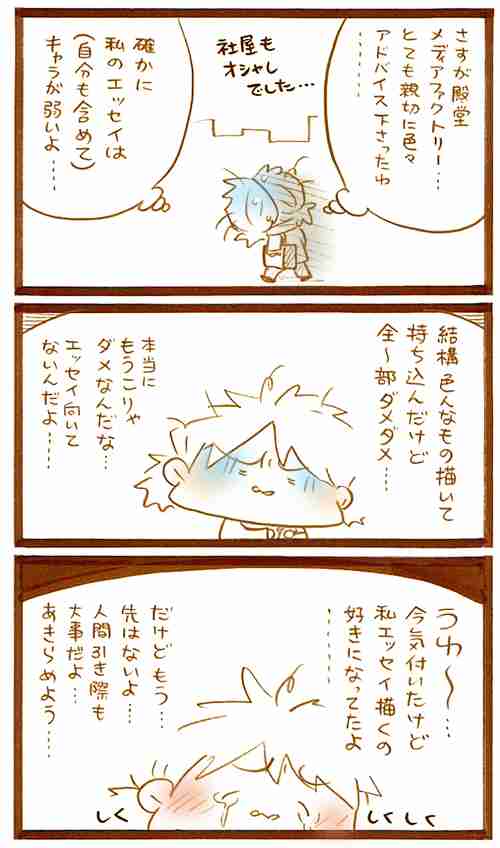 さすが殿堂
メディアファクトリー…
とても親切に色々
アドバイス下さったわ
………
社屋も
オシャレ
でした…
確かに
私のエッセイは
(自分も含めて)
キャラが弱いよ……
結構色んなもの描いて
持ち込んだけど
全～部ダメダメ……
本当に
もうこりゃ
ダメなんだな…
エッセイ向いて
ないんだよ……
うわ～…
今気付いたけど
私エッセイ描くの
好きになってたよ
………
だけどもう…
先はないよ…
人間引き際も
大事だよ…
あきらめよう……
しく
しくしく